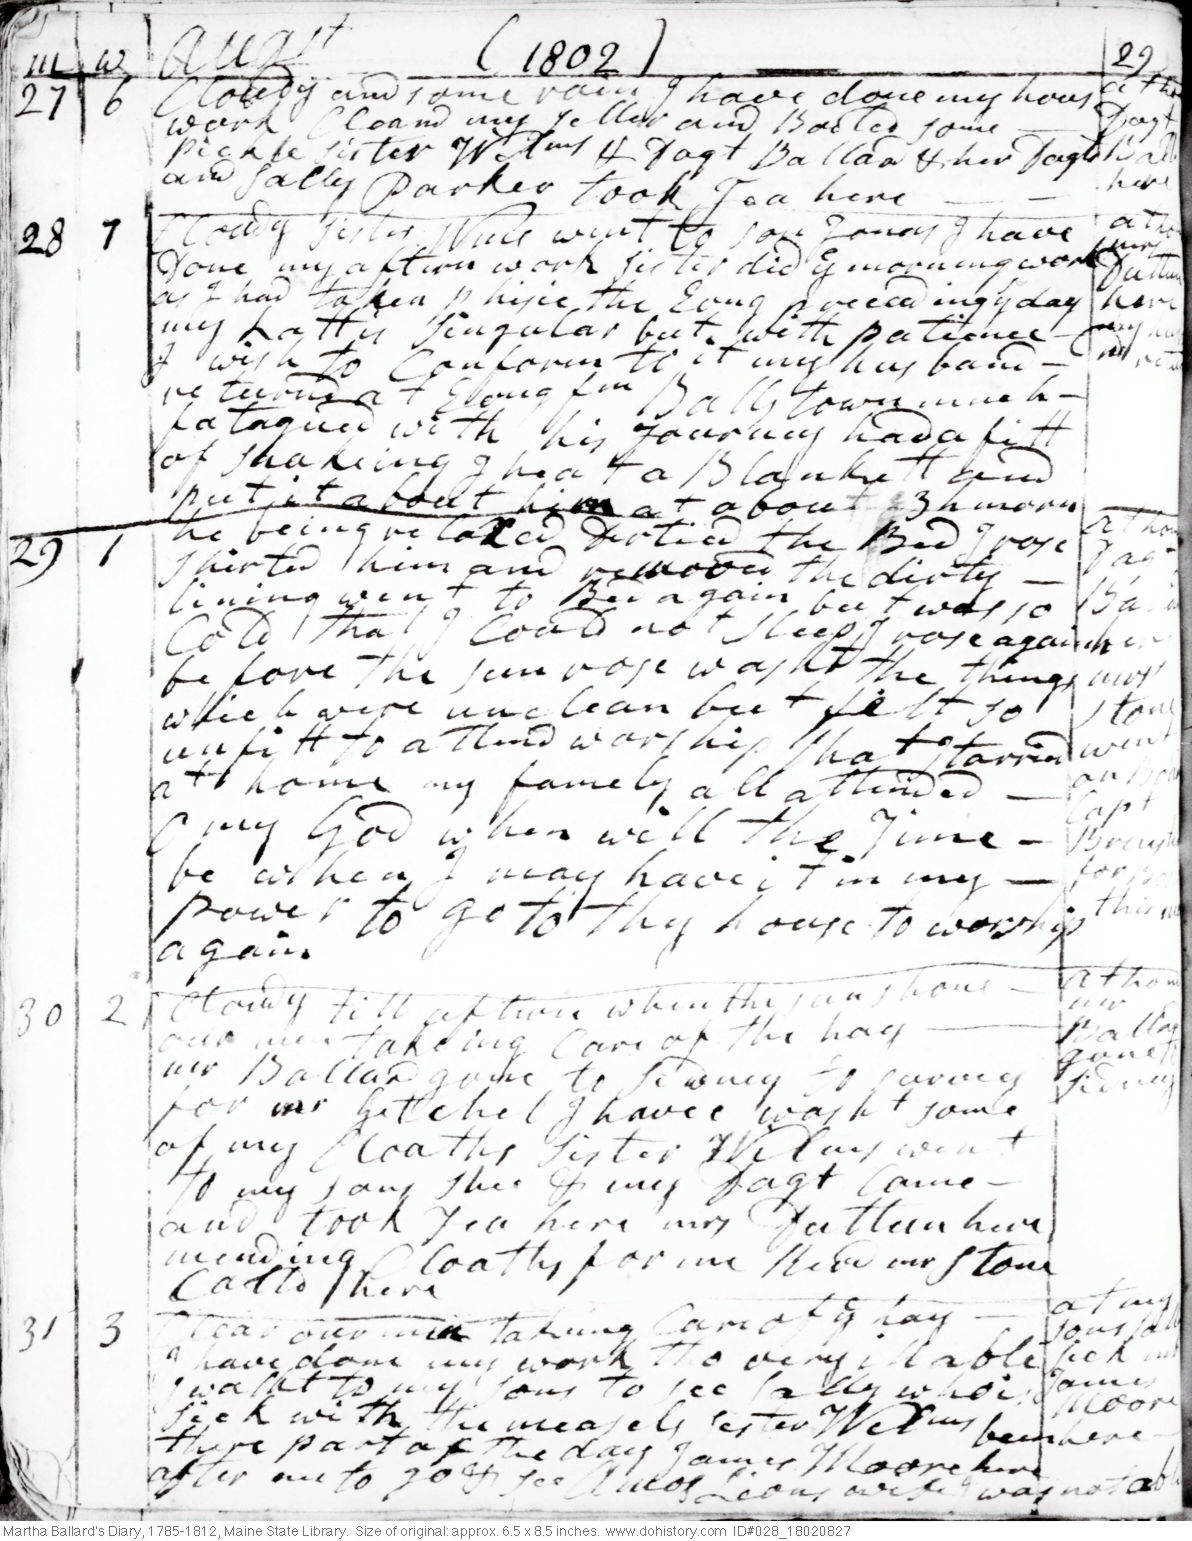 m w August (1802) 29
27 6 Cloudy and some rain I have done my hous
work Cleand my seller and Boiled some
pickle sister Wilms & Dagt Ballad & her Dagts
and Sally Parker took Tea here
at hom
Dagt
Ball
here
28 7 Cloudy Sister went to son Jonas I have
Done my aftern work sister did ye morning work
as I had taken phisic the Evng preceeding ye day
my Latt is singular but with patience
I wish to Conform to it my husband
returnd at Evng fm Balls town much
fatagued with his Journey had a fitt
of shakeing I heat a Blankett and
put it about him at about 3 h morn
at hom
mrs
Duttun
here
my hus
nd retu
29 1 he being relaxed Dirtied the Bed I rose
shirted him and removed the dirty
lining went to Bed again but was so
Cold that I Coud not sleep I rose again
before the sun rose washt the things
which were unclean but felt so
unfitt to attend worship that I tarried
at home my famely all attinded
O my God when will the Time
be when I may have it in my
power to go to thy house to worship
again
at hom
Dagt
Ba
her
mrs
stone
went
on Boar
Capt
for Bo
this m
30 2 Cloudy till aftern when the sun shone
our men takeing Care of the hay
mr Ballard gone to Sidney to survey
for mr Getchel I have washt some
of my Cloaths sister Wilms went
to my sons shee & my Dagt Came
and took Tea here mrs Duttun here
mending Cloaths for me Revd mr Stone
Calld here
at hom
mr
Ballad
gone to
Sidney
31 3 Clear our men takeing Care of ye hay
I have done my work tho very ill able
I walkt to my sons to see Sally who is
sick with the measels sister Wilms been
there part of the day James Moore here
after me to go & see Amos Lions wife I was not abl
at my
sons Sall
sick
James
Moore
here
Martha Ballard's Diary, 1785-1812, Maine State Library. Size of original: approx. 6.5 x 8.5 inches. www.dohistory.com ID#028_18020827